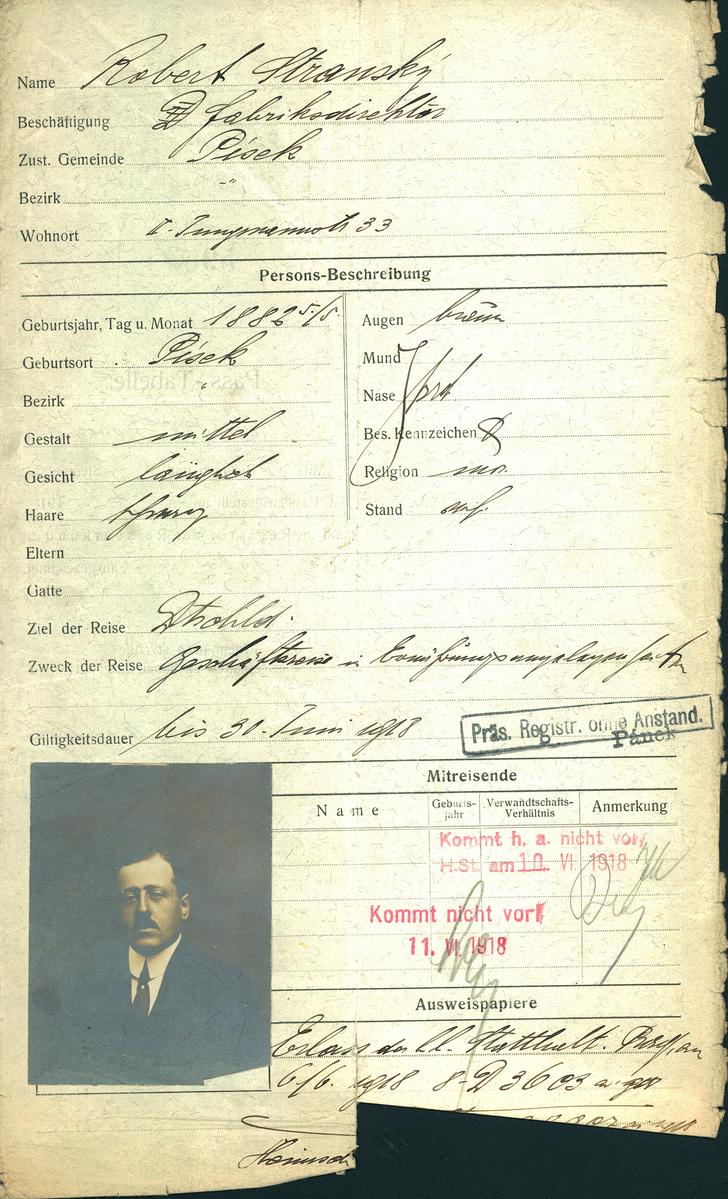 Name Robert Stranský
Beschäftigung Fabriksdirektor
Zust. Gemeinde Pisek
Bezirk -"-
Wohnort 33
Persons-Beschreibung
Geburtsjahr, Tag u. Monat 1882 5/5.
Geburtsort Pisek
Bezirk "
Gestalt mittel
Gesicht länglich
Haare schwarz
Eltern
Gatte
Augen braun
Mund
Nase prop
Bes. Kennzeichen
Religion mos.
Stand
Ziel der Reise Dtschld.
Zweck der Reise Geschäftsreise in
Giltigkeitsdauer bis 30. Juni 1918
Präs. Registr. ohne Anstand.
Pánek
Mitreisende
Name
Geburts-
jahr
Verwandtschafts-
Verhältnis
Anmerkung
Kommt h. a. nicht vor/
H.St. am 10. VI. 1918
Kommt nicht vor!
11. VI. 1918
Ausweispapiere
Erlass der k.k. Statthalt. Prag
6/6. 1918 8-D 3603